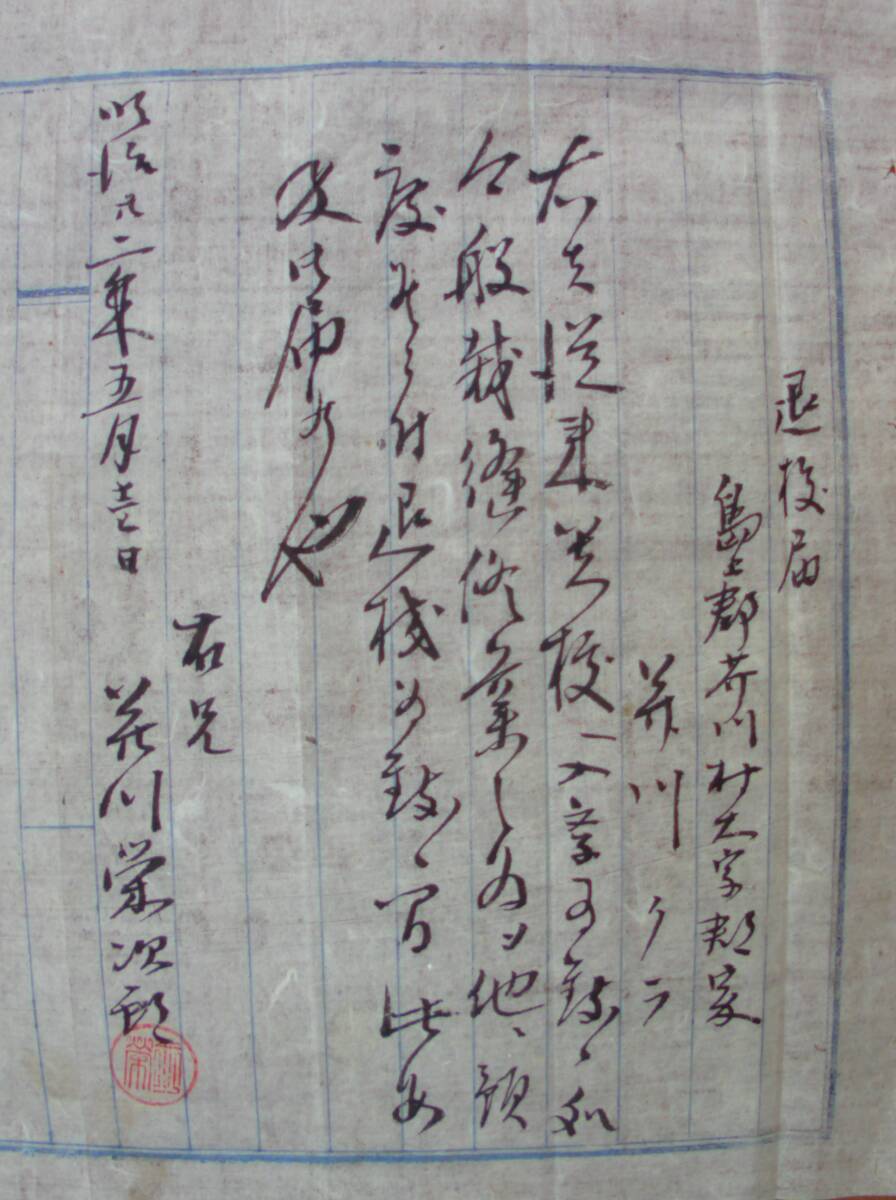 退校届
島上郡芥川村大字郡家
芥川クラ
右者従来芝校ヘ入学為致候処
今般裁縫修業之為メ他ヘ預
度候ニ付退校為致候間此段
及御届候也
明治廿二年五月壱日
右兄
芥川栄次郎